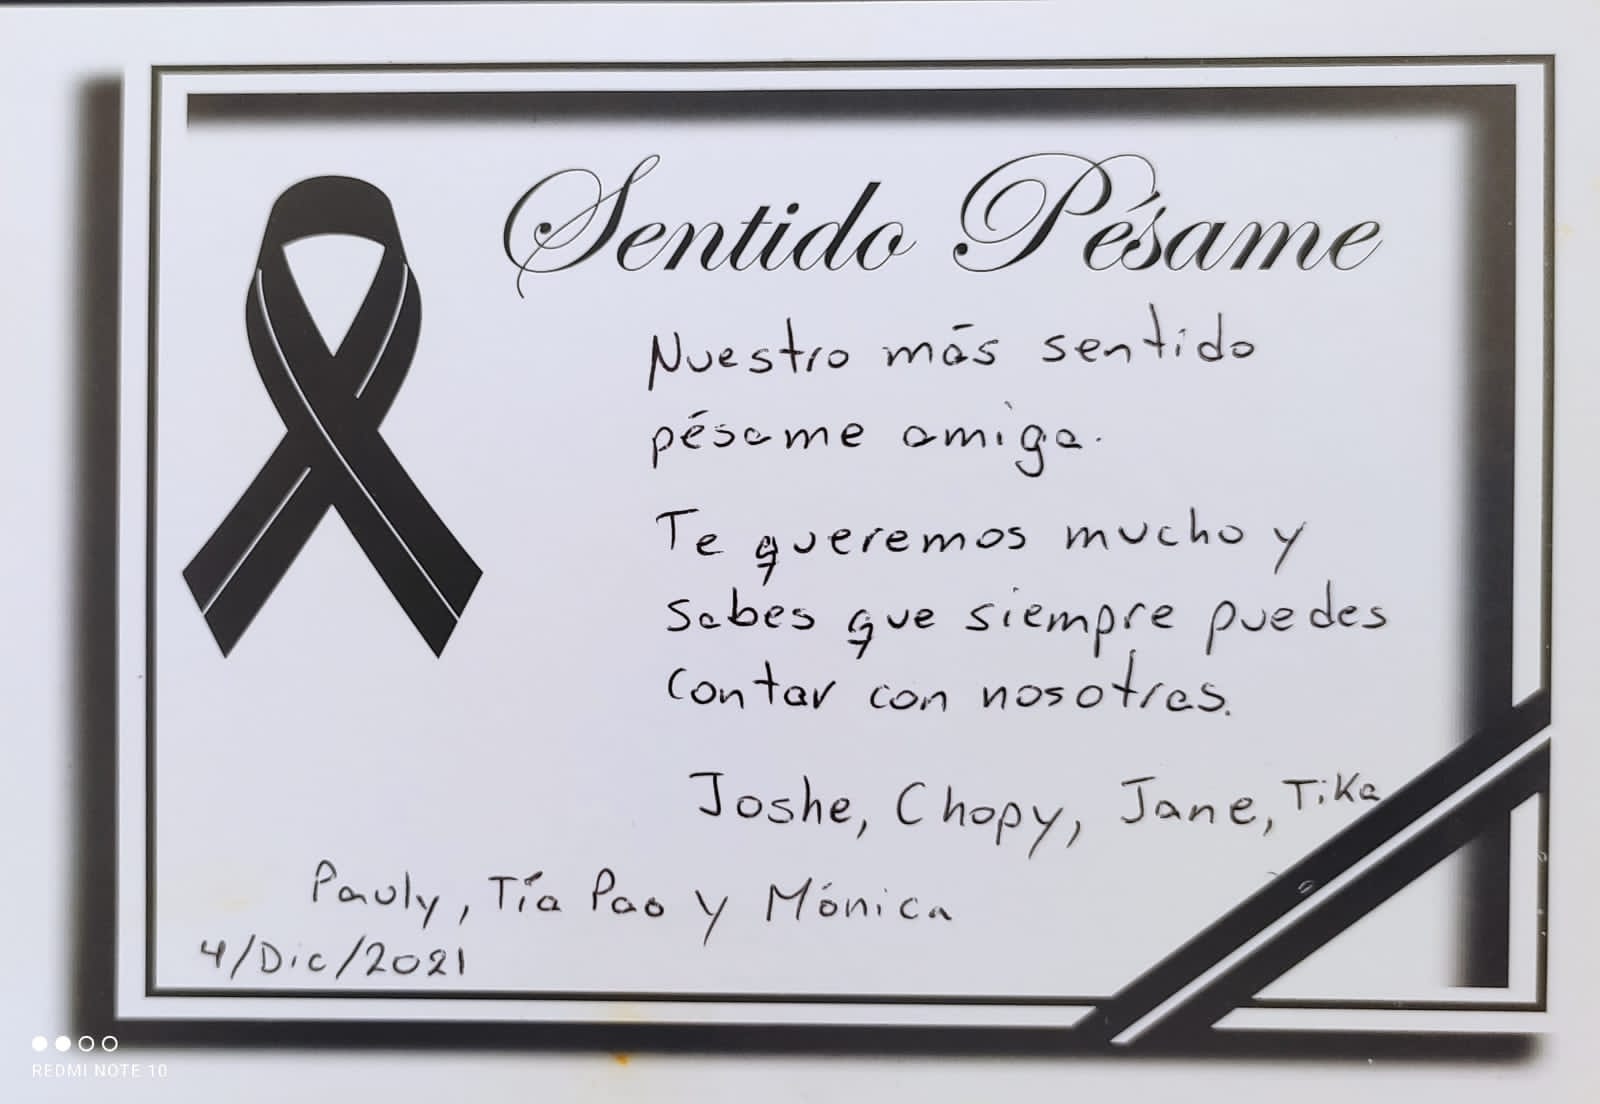 Sentido Pésame
Nuestro más sentido
pésame amiga.
Te queremos mucho y
sabes que siempre puedes
contar con nosotras.
Joshe, Chopy, Jane, Tika
Pauly, Tía Pao y Mónica
4/Dic/2021
REDMI NOTE 10